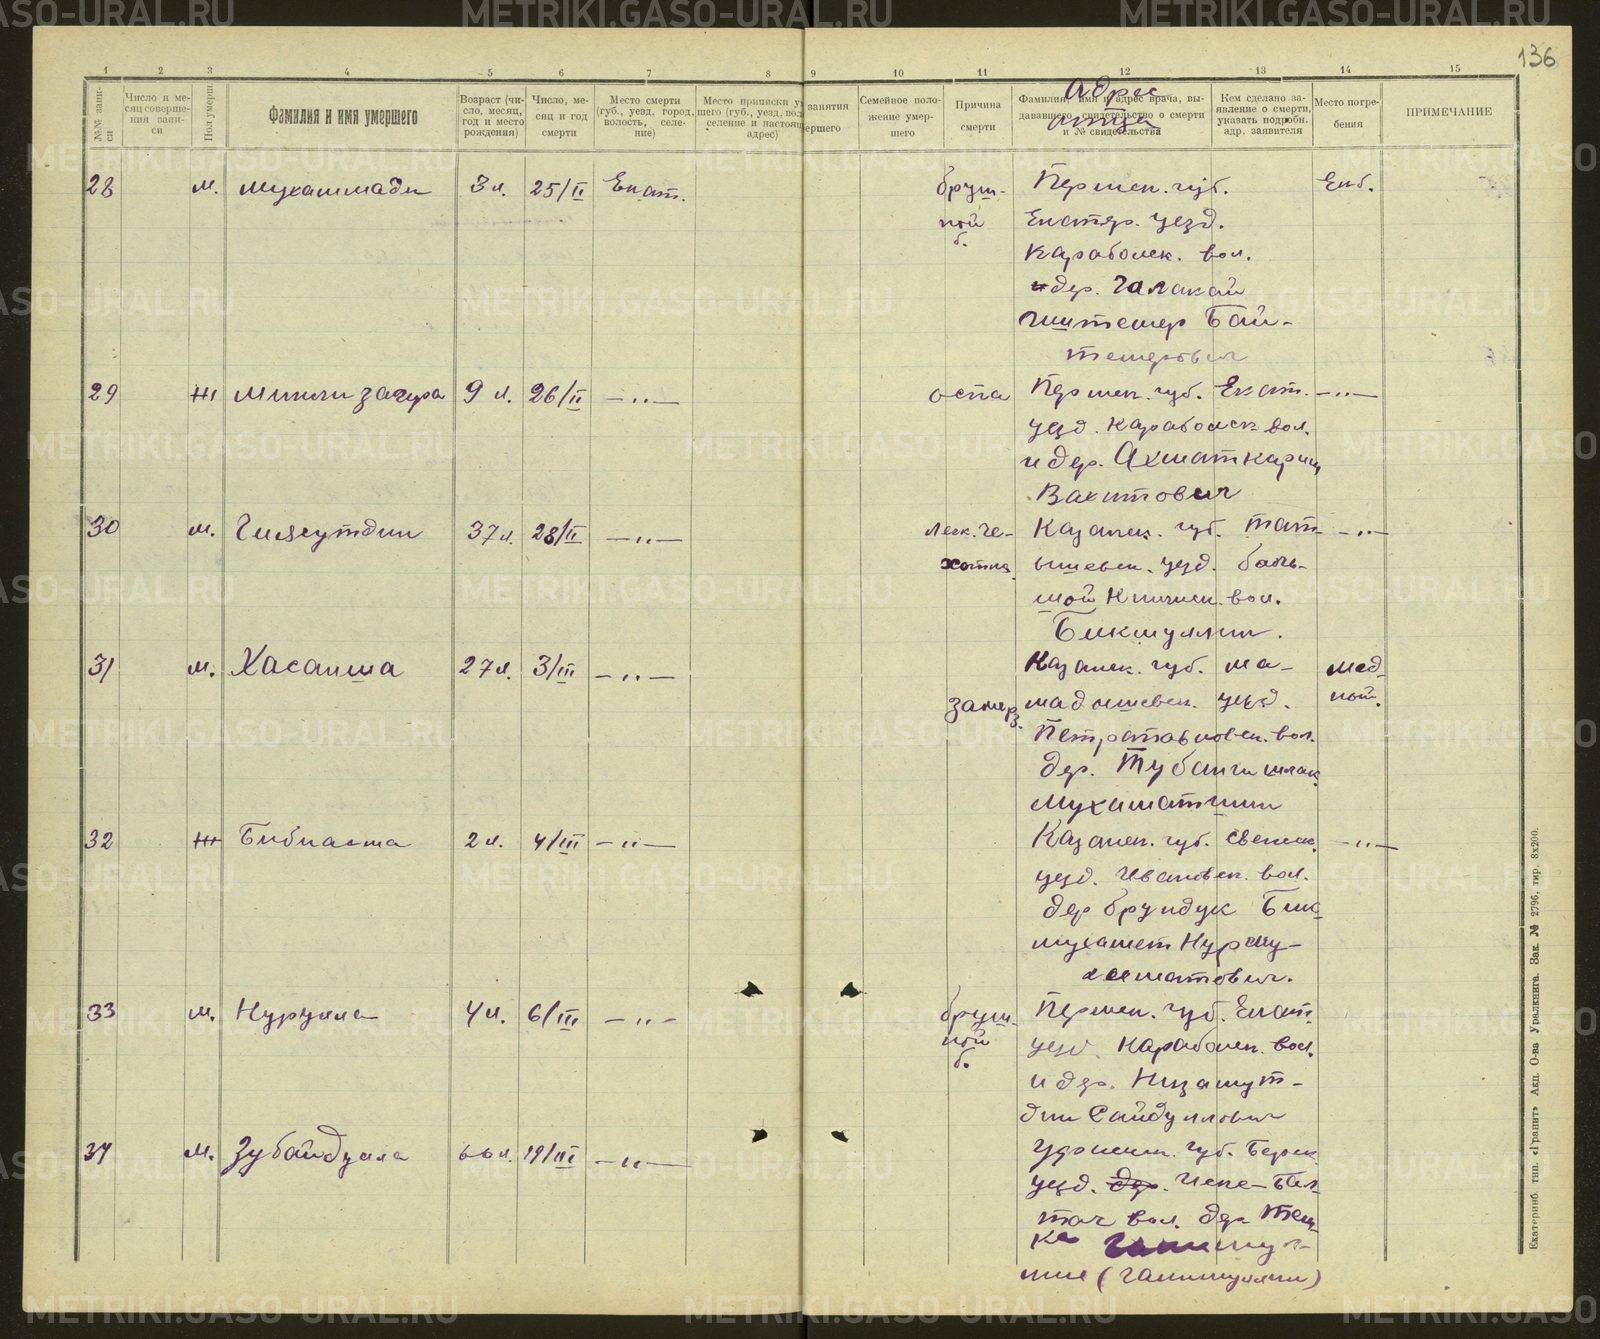 136
1 2 3 4 5 6 7 8 9 10 11 12 13 14 15
№№ записи
Число и месяц совершения записи
Пол умерш.
Фамилия и имя умершего
Возраст (число, месяц, год и место рождения)
Число, месяц и год смерти
Место смерти (губ., уезд, город, волость, селение)
Место приписки у
шего (губ., уезд, вол
селение и настоящ
адрес)
занятия
ершего
Семейное положение умершего
Причина смерти
Фамилия, имя и адрес врача, выдававшего свидетельство о смерти и № свидетельства
Адрес
отца
Кем сделано заявление о смерти, указать подробн. адр. заявителя
Место погребения
ПРИМЕЧАНИЕ
28 м. Мухаммади 3 л. 25/II Екат. брюш- Пермск. губ. Екб.
ной Екатер. уезд.
б. Караболск. вол.
и дер. Галакай
Байтемерович
29 ж Минлизагура 9 л. 26/II —"— оспа Пермск. губ. Екат. —"—
уезд. Караболск. вол.
и дер. Ахматкарим
Вахитович
30 м. Гиляутдин 37 л. 28/II —"— Легк. че- Казанск. губ. —"—
хотка уезд. боль-
шой вол.
Бикмуллин.
31 м. Хасанша 27 л. 3/III —"— Казанск. губ. ма- мед
замерз. мадышевск. уезд. ной.
вол.
дер.
Мухаматшин
32 ж Бибиасма 2 л. 4/III —"— Казанск. губ. Свияжск. —"—
уезд. Ивановск. вол.
дер Брундук Бик-
мухамет Нурму-
хаматович.
33 м. Нурулла 4 л. 6/III —"— брюш- Пермск. губ. Екат.
ной уезд. Караболск. вол.
б. и дер. Низамут-
дин Сайдуллович
34 м. Зубайдулла 66 л. 19/III —"— Уфимск. губ. Бирск.
уезд. дер. вол. дер.
(Ганимуллин)
Екатеринб. тип. «Гранит» Акц. О-ва Уралкнига. Зак. № 2796, тир. 8х200.
METRIKI.GASO-URAL.RU